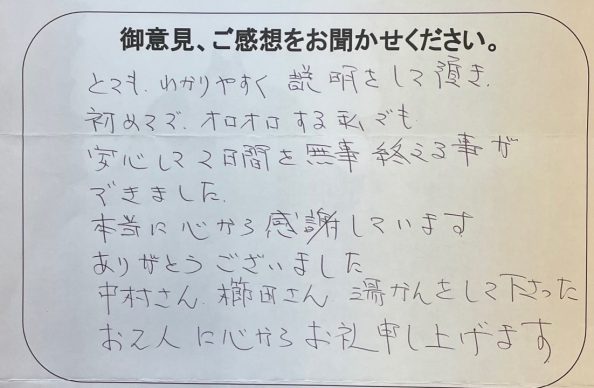 御意見、ご感想をお聞かせください。
とても、わかりやすく 説明をして頂き、
初めてで、オロオロする私でも
安心して2日間を無事終える事が
できました。
本当に心から感謝しています
ありがとうございました
中村さん、櫛田さん、湯かんをして下さった
お2人に心からお礼申し上げます